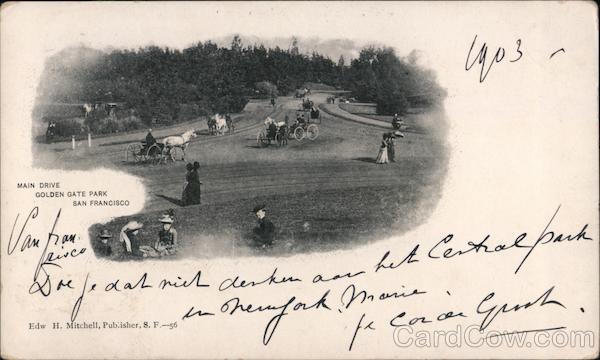 1903
MAIN DRIVE
GOLDEN GATE PARK
SAN FRANCISCO
San Fran-
cisco
Doe je dat niet denken aan het Central park
in New york, Marie.
je
Edw H. Mitchell, Publisher, S. F.—56
CardCow.com